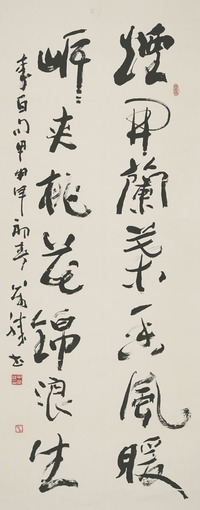 煙開蘭葉香風暖
岸夾桃花錦浪生
李白句甲申年初春